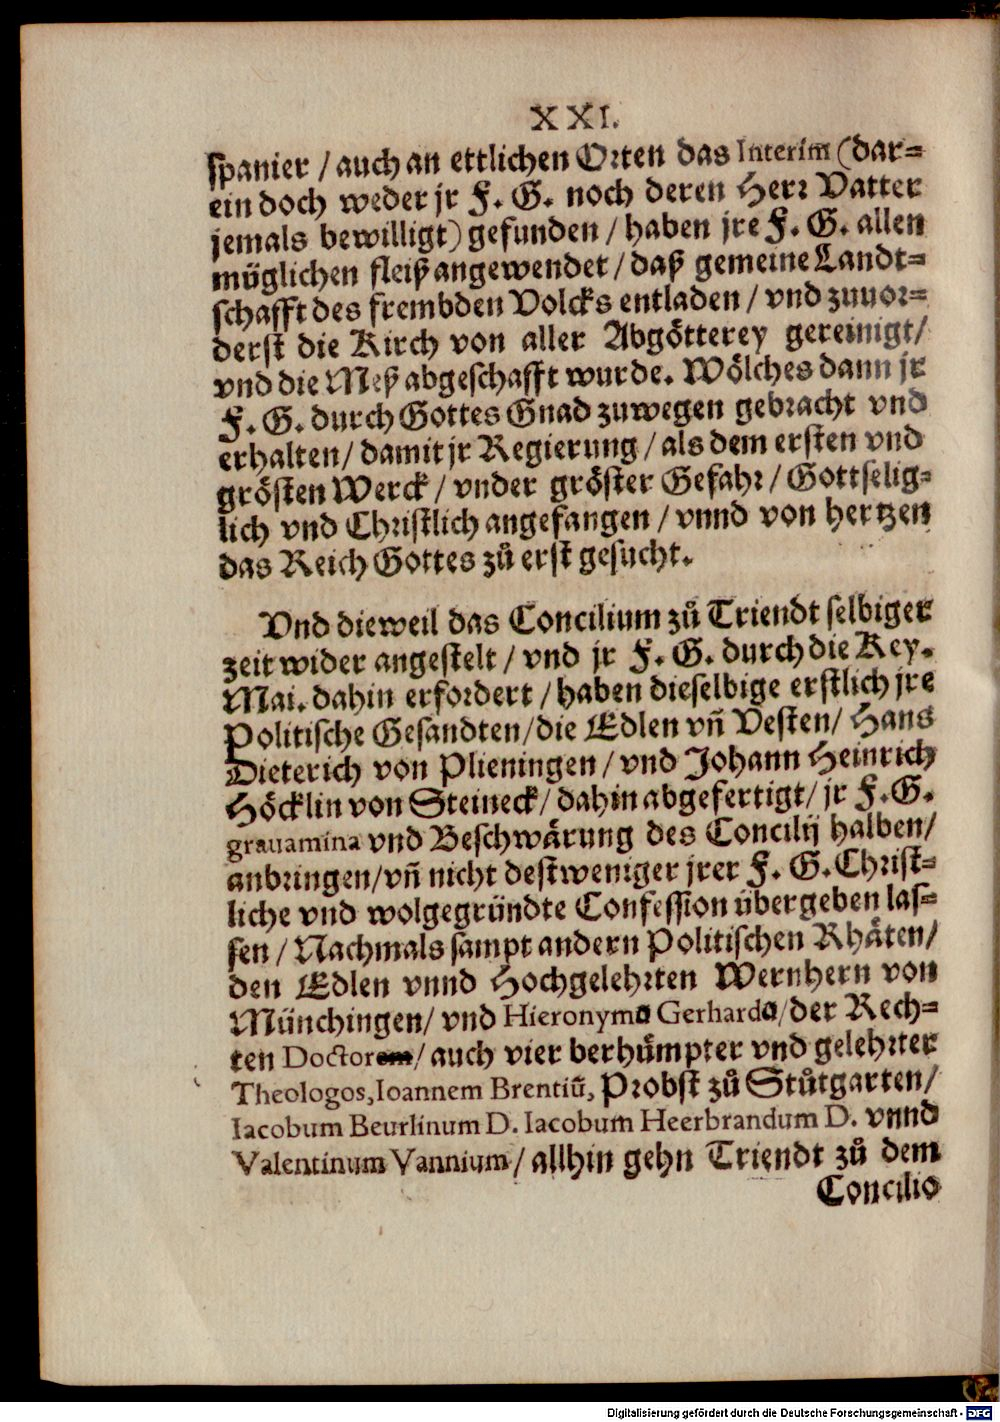 XXI.
spanier / auch an ettlichen Orten das Interim (dar=
ein doch weder jr F. G. noch deren Herr Vatter
jemals bewilligt) gefunden / haben jre F. G. allen
müglichen fleiß angewendet / daß gemeine Landt=
schafft des frembden Volcks entladen / vnd zuuor=
derst die Kirch von aller Abgötterey gereinigt/
vnd die Meß abgeschafft wurde. Wölches dann jr
F. G. durch Gottes Gnad zuwegen gebracht vnd
erhalten / damit jr Regierung / als dem ersten vnd
grösten Werck / vnder gröster Gefahr / Gottselig=
lich vnd Christlich angefangen / vnnd von hertzen
das Reich Gottes zů erst gesucht.
Vnd dieweil das Concilium zů Triendt selbiger
zeit wider angestelt / vnd jr F. G. durch die Key.
Mai. dahin erfordert / haben dieselbige erstlich jre
Politische Gesandten / die Edlen vñ Vesten / Hans
Dieterich von Plieningen / vnd Johann Heinrich
Höcklin von Steineck / dahin abgefertigt / jr F. G.
grauamina vnd Beschwärung des Concilij halben/
anbringen / vñ nicht destweniger jrer F. G. Christ=
liche vnd wolgegründte Confession übergeben las=
sen / Nachmals sampt andern Politischen Rhäten/
den Edlen vnnd Hochgelehrten Wernhern von
Münchingen / vnd Hieronymo Gerhardo / der Rech=
ten Doctor / auch vier berhůmpter vnd gelehrter
Theologos, Ioannem Brentiũ, Probst zů Stůtgarten/
Iacobum Beurlinum D. Iacobum Heerbrandum D. vnnd
Valentinum Vannium / allhin gehn Triendt zů dem
Concilio
Digitalisierung gefördert durch die Deutsche Forschungsgemeinschaft - DFG